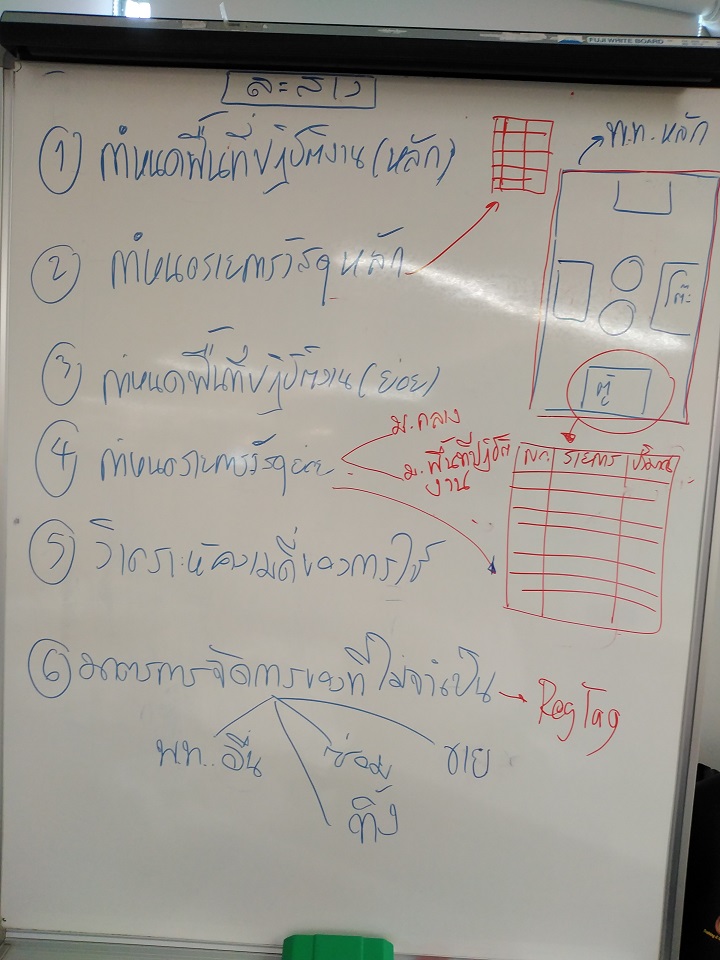 FUJI WHITE BOARD
สะสาง
① กำหนดพื้นที่ปฏิบัติงาน (หลัก)
พ.ท. หลัก
② กำหนดรายการวัสดุหลัก
โต๊ะ
③ กำหนดพื้นที่ปฏิบัติงาน (ย่อย)
ตู้
④ กำหนดรายการวัสดุย่อย
ม.กลาง
ม.พื้นที่ปฏิบัติ
งาน
รายการ
⑤ วิเคราะห์ความถี่ของการใช้
⑥ มาตรการจัดการของที่ไม่จำเป็น → Reg Tag
พ.ท. อื่น
ซ่อม
ขาย
ทิ้ง